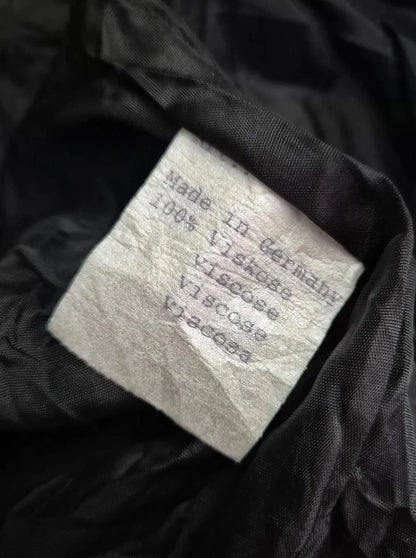 Made in Germany
100% Viskose
viscose
viscose
viscosa